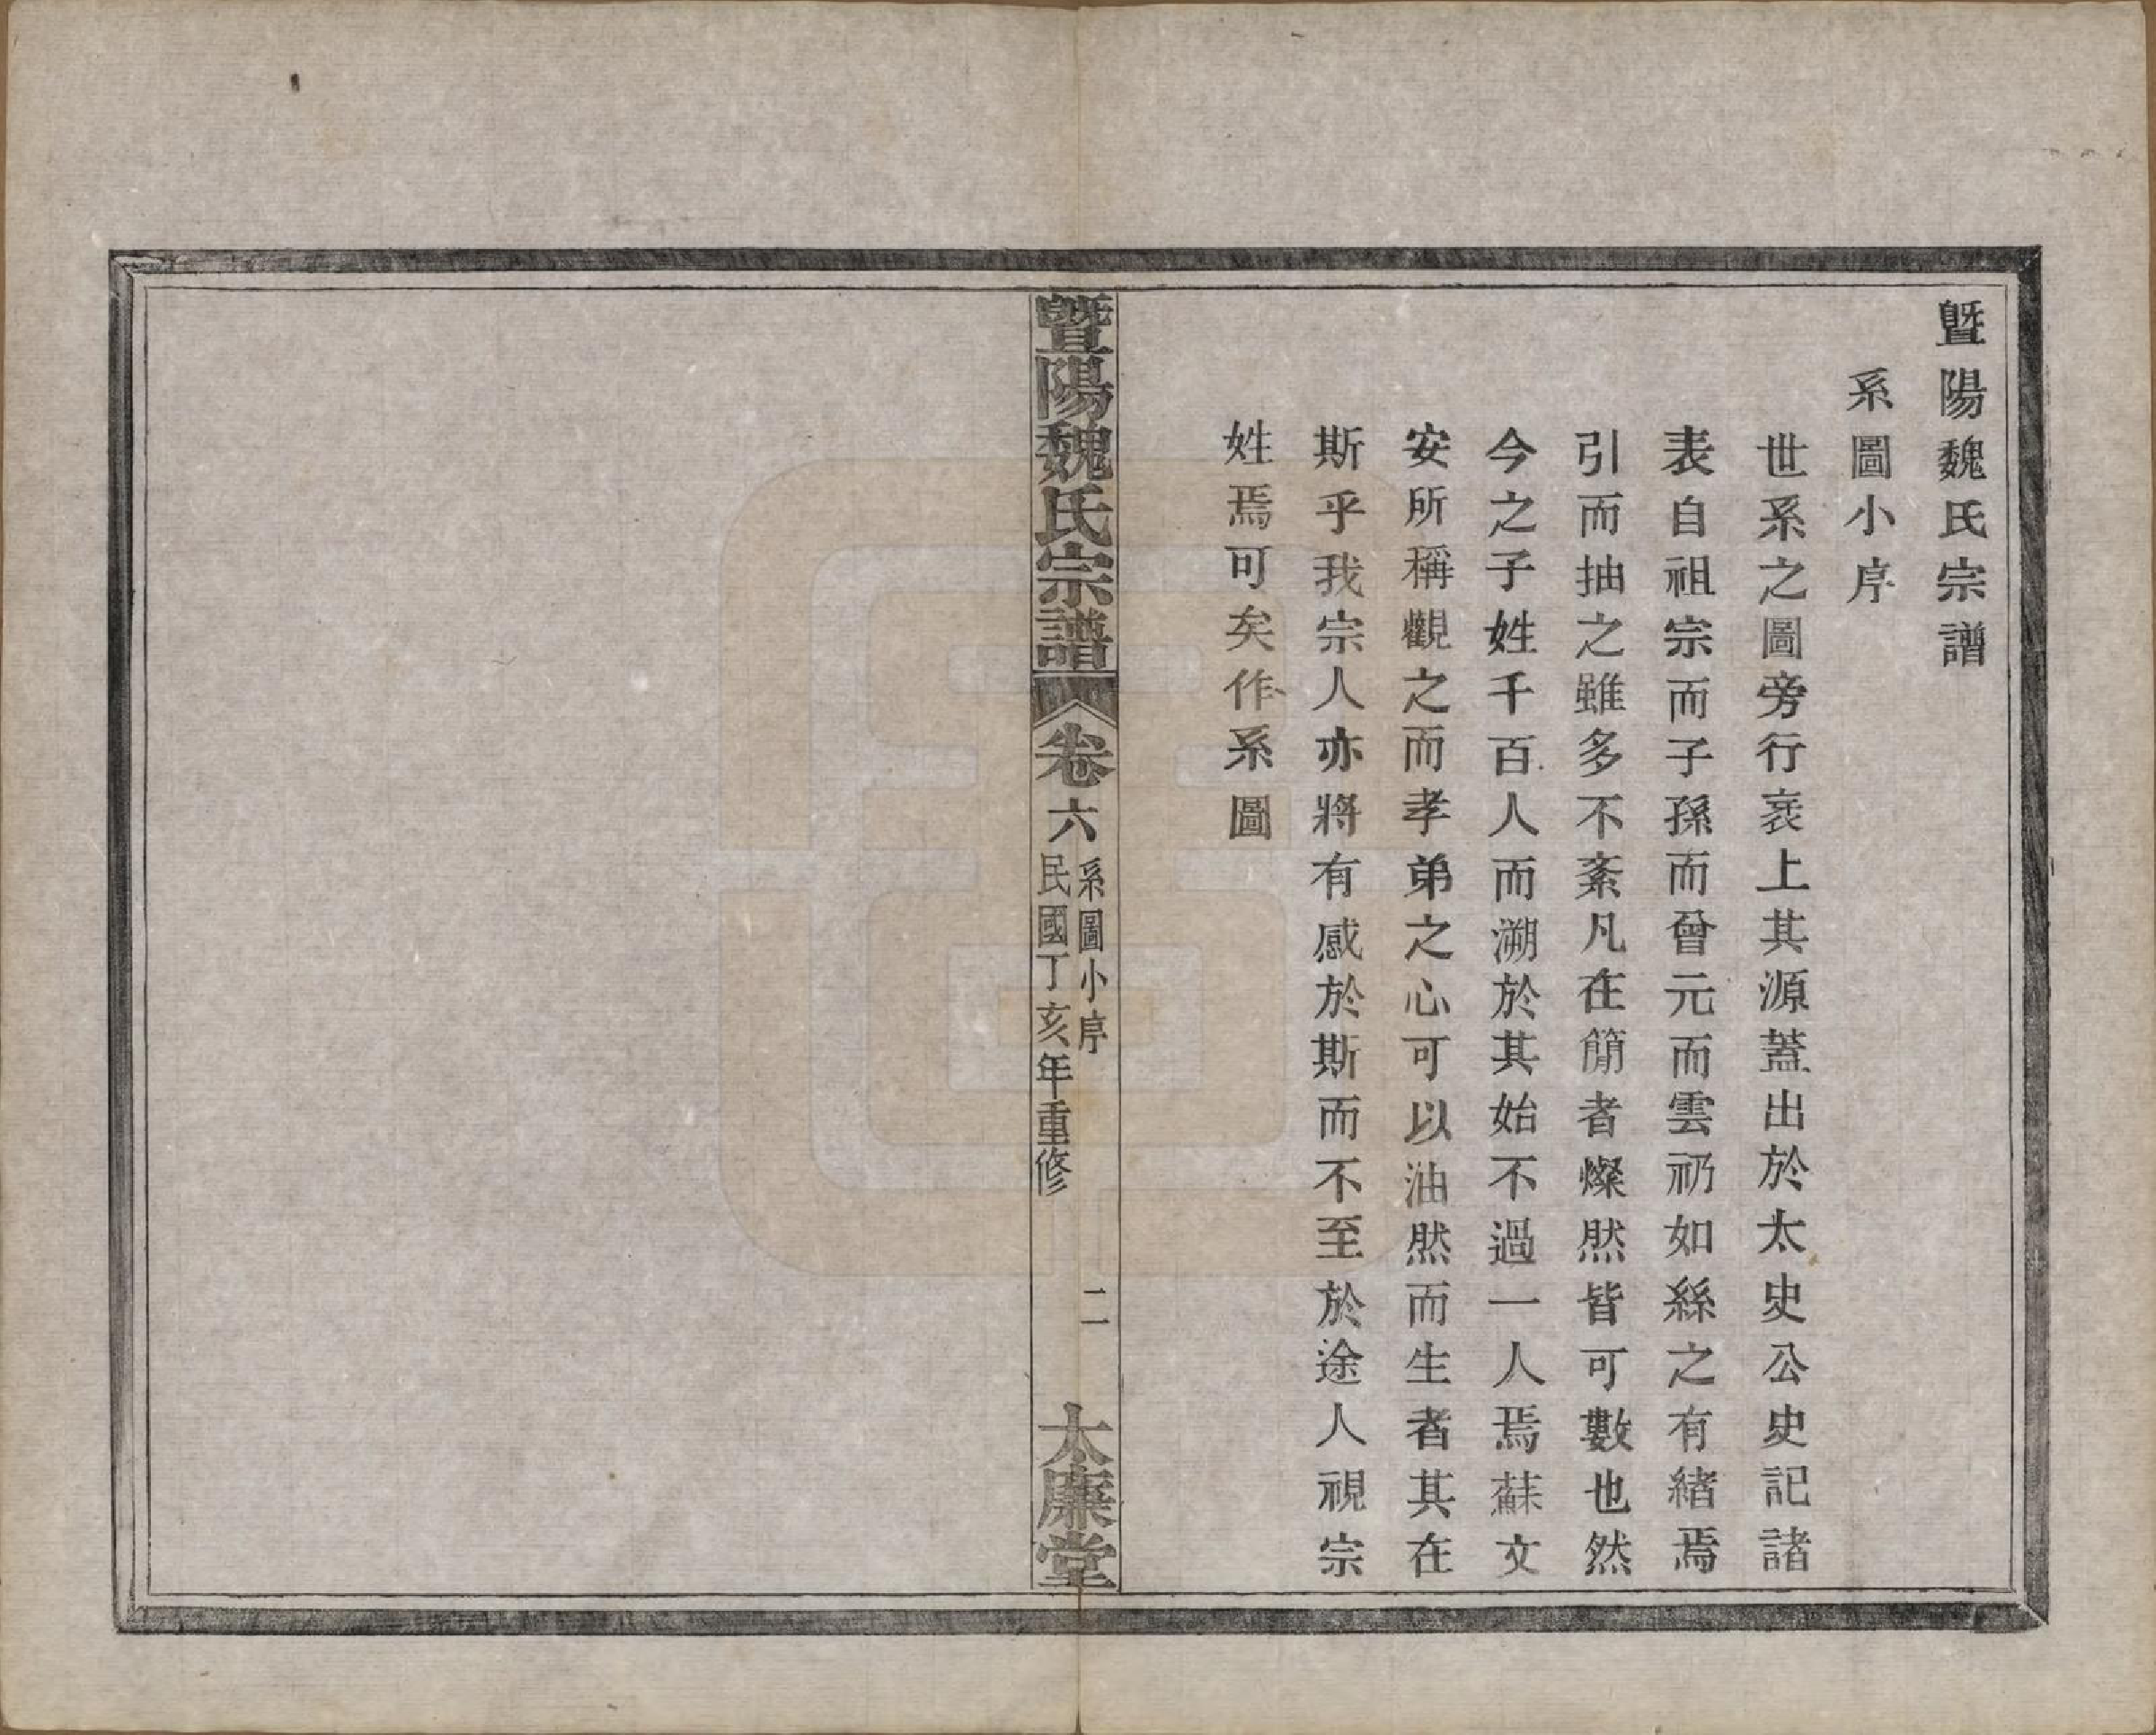 暨陽魏氏宗譜
系圖小序
世系之圖旁行衺上其源蓋出於太史公史記諸
表自祖宗而子孫而曾元而雲礽如絲之有緒焉
引而抽之雖多不紊凡在簡者燦然皆可數也然
今之子姓千百人而溯於其始不過一人焉蘇文
安所稱觀之而孝弟之心可以油然而生者其在
斯乎我宗人亦將有感於斯而不至於途人視宗
姓焉可矣作系圖
暨陽魏氏宗譜
卷六
系圖小序
民國丁亥年重修
二
大廉堂